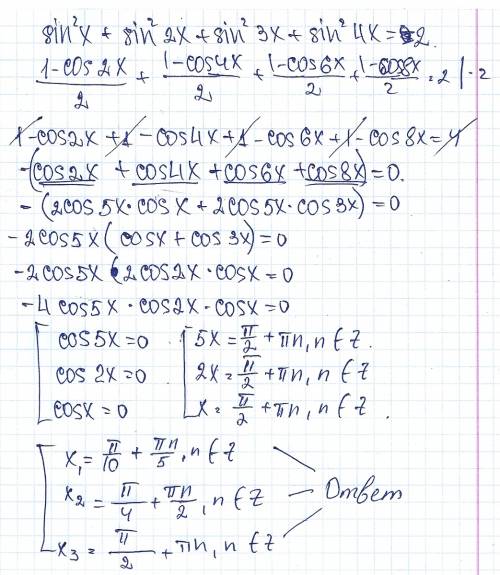 sin²x + sin² 2x + sin² 3x + sin² 4x = 2.
(1-cos 2x)/2 + (1-cos4x)/2 + (1-cos6x)/2 + (1-cos8x)/2 = 2 | · 2
1 - cos2x + 1 - cos4x + 1 - cos6x + 1 - cos8x = 4
-(cos2x + cos4x + cos6x + cos8x) = 0.
- (2cos5x · cosx + 2cos5x · cos3x) = 0
- 2cos5x (cosx + cos3x) = 0
- 2cos5x · 2cos2x · cosx = 0
- 4cos5x · cos2x · cosx = 0
[ cos5x = 0 [ 5x = π/2 + πn, n ∈ Z.
cos 2x = 0 2x = π/2 + πn, n ∈ Z
cosx = 0 x = π/2 + πn, n ∈ Z.
[ x₁ = π/10 + πn/5, n ∈ Z
x₂ = π/4 + πn/2, n ∈ Z — Ответ
x₃ = π/2 + πn, n ∈ Z